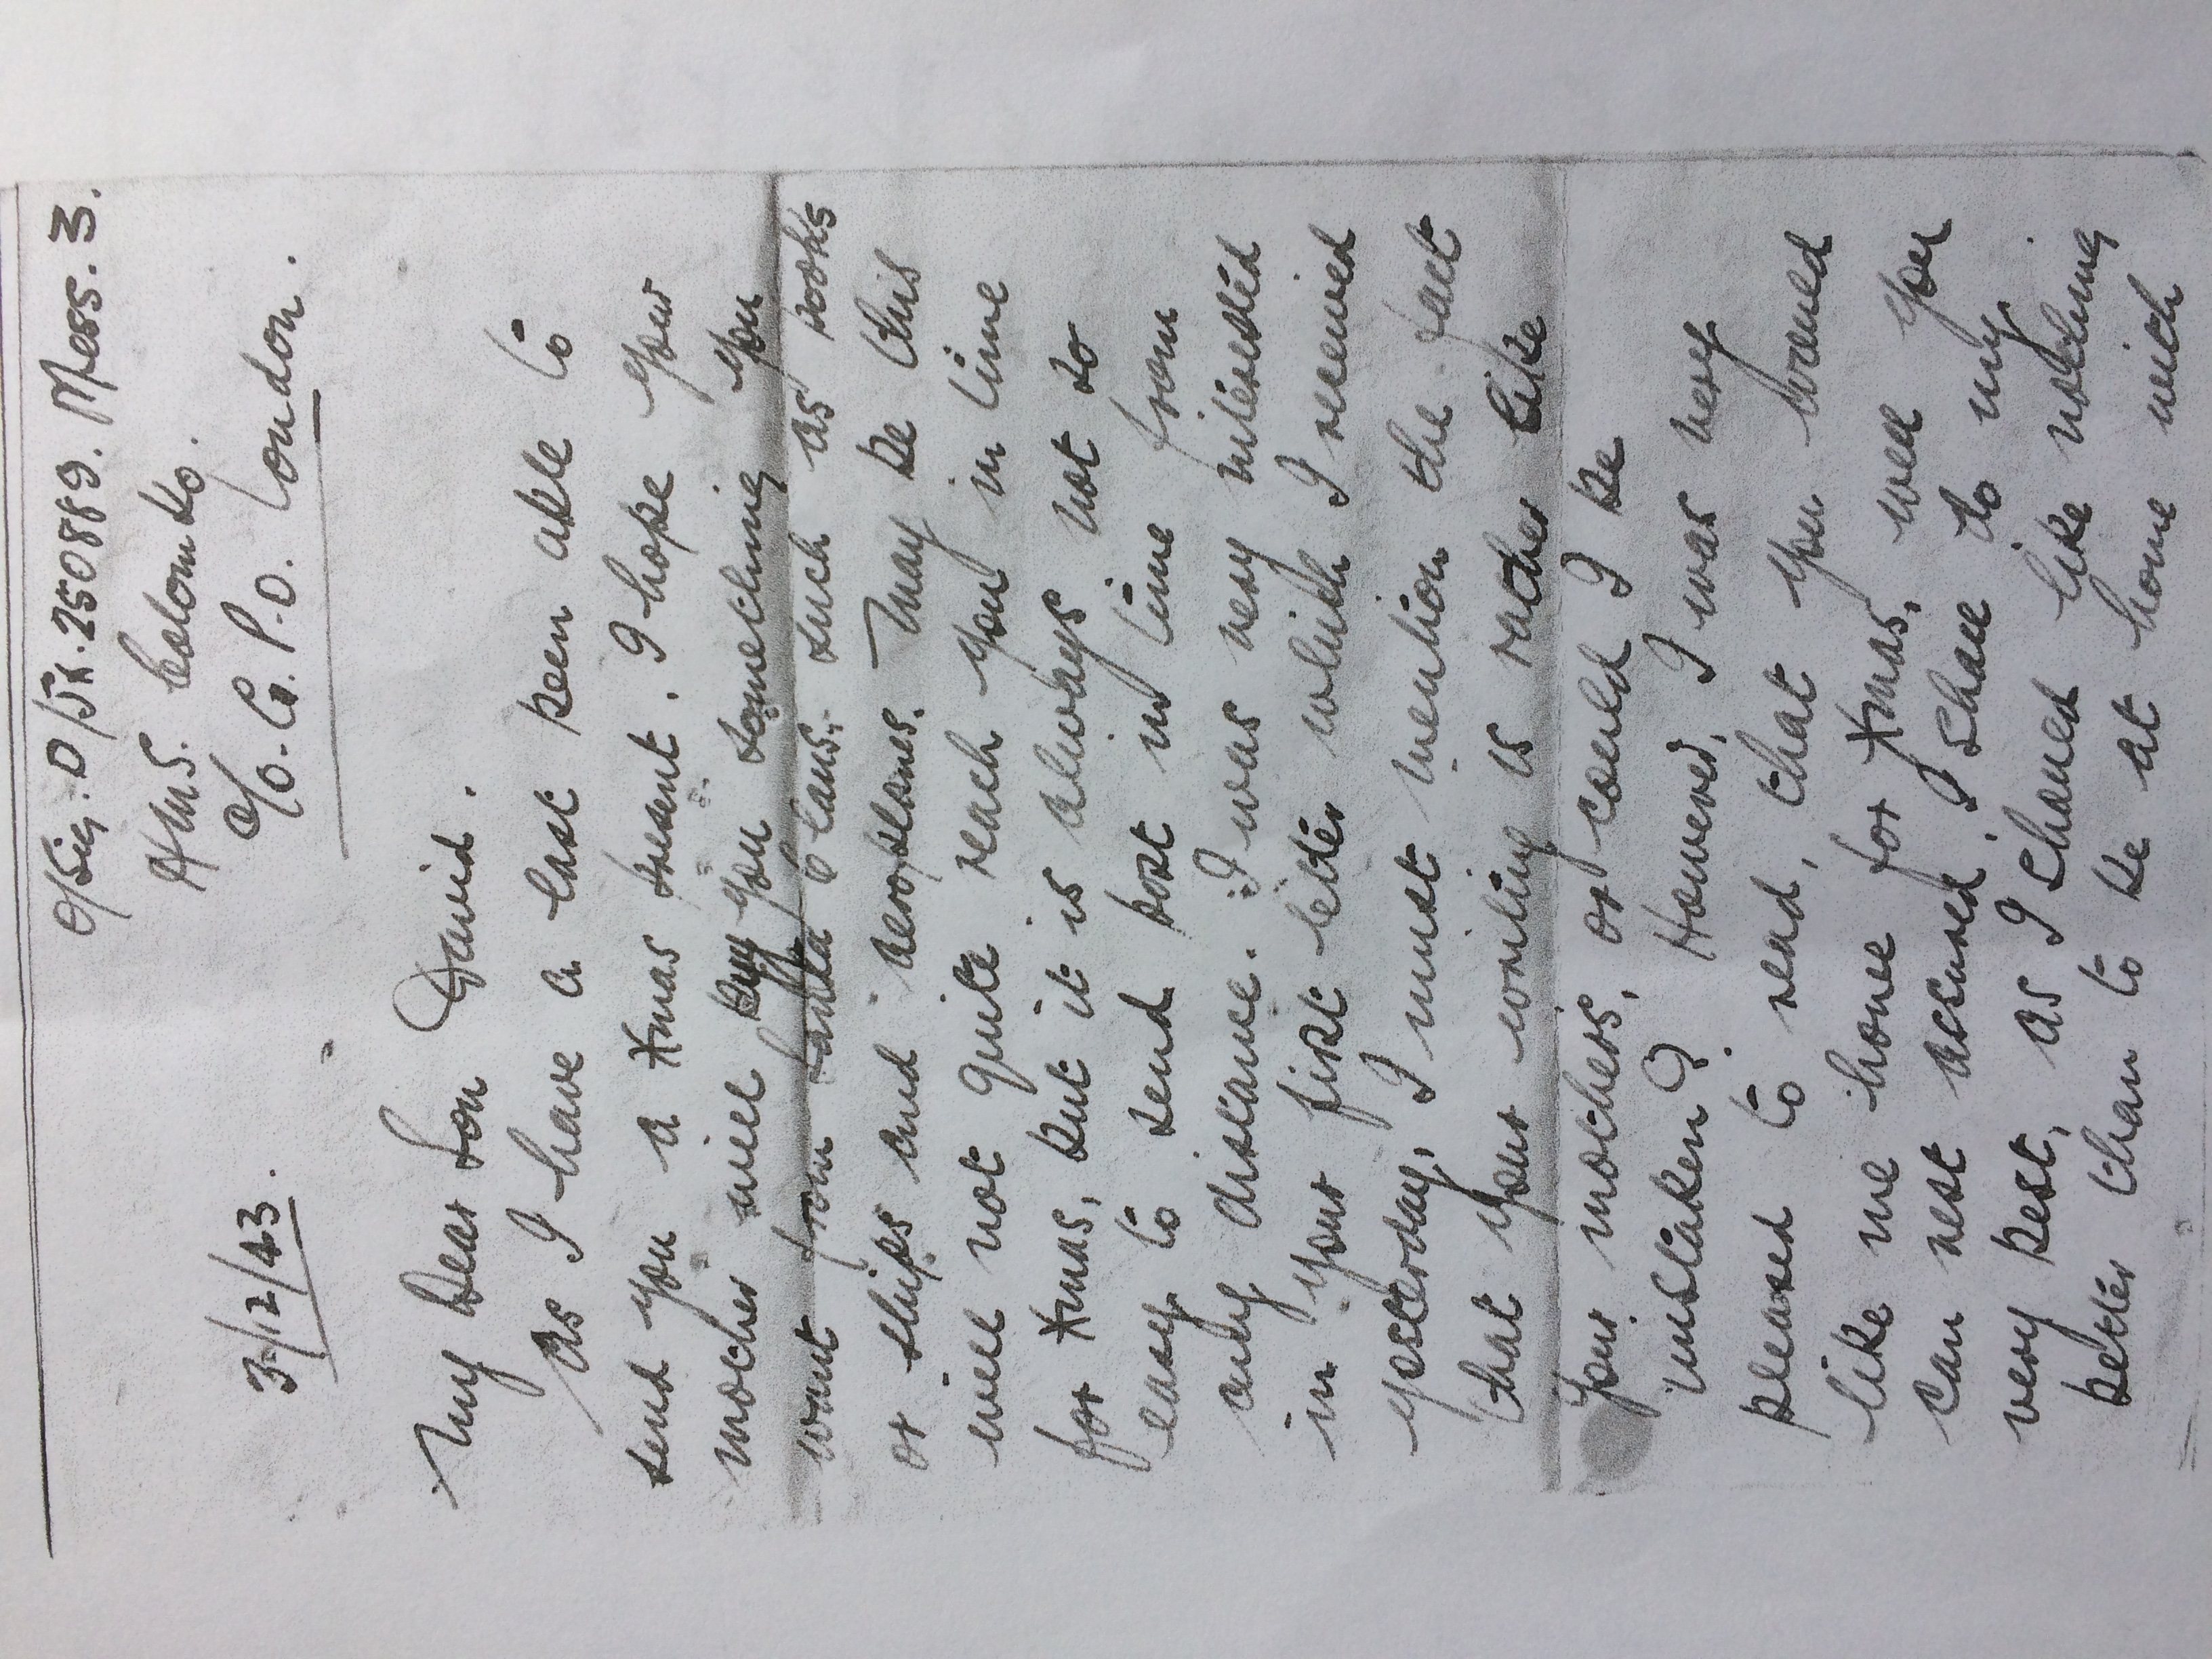 O/Sig. D/JX. 250889. Mess. 3.
HMS. Colombo.
C/o. G. P. O. London.
3/12/43.
My Dear Son David.
As I have a last been able to
send you a Xmas present. I hope your
mother will buy you something you
want from Santa Claus. such as books
or ships and aeroplanes. may be this
will not quite reach you in time
for Xmas, but it is always not so
easy to send post in time from
any distance. I was very interested
in your first letter which I received
yesterday, I must mention the fact
that your writing is rather like
your mothers, or could I be
mistaken? However, I was very
pleased to read, that you would
like me home for Xmas, well you
can rest assured, I shall do my
very best, as I should like nothing
better than to be at home with